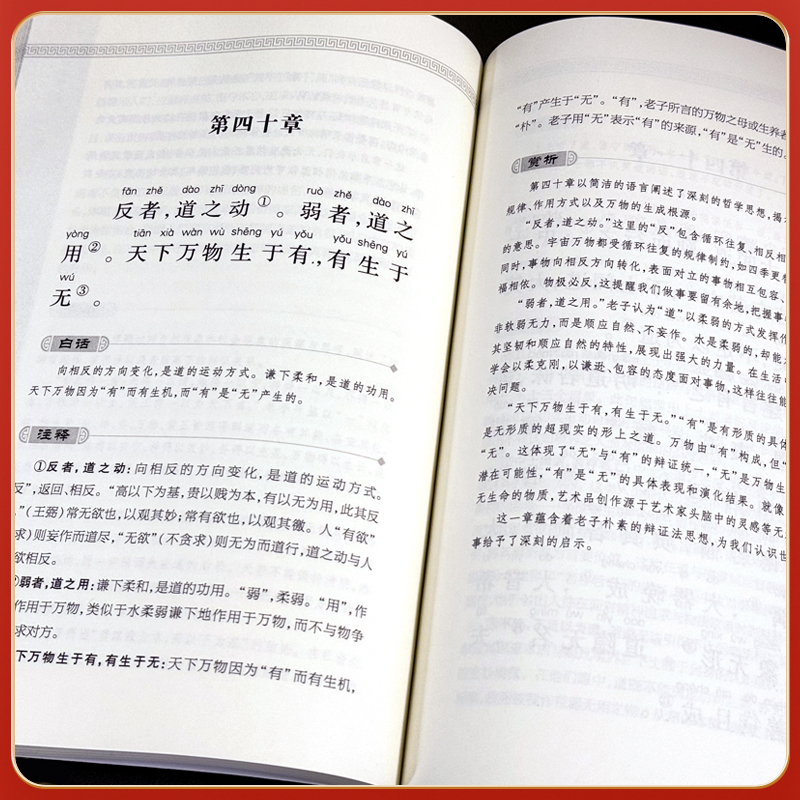 第四十章
fǎn zhě dào zhī dòng ruò zhě dào zhī
反者，道之动①。弱者，道之
yòng tiān xià wàn wù shēng yú yǒu yǒu shēng yú
用②。天下万物生于有，有生于
wú
无③。
白话
向相反的方向变化，是道的运动方式。谦下柔和，是道的功用。
天下万物因为“有”而有生机，而“有”是“无”产生的。
注释
①反者，道之动：向相反的方向变化，是道的运动方式。
反”，返回、相反。“高以下为基，贵以贱为本，有以无为用，此其反
。”（王弼）常无欲也，以观其妙；常有欲也，以观其徼。人“有欲”
求）则妄作而道尽，“无欲”（不贪求）则无为而道行，道之动与人
欲相反。
②弱者，道之用：谦下柔和，是道的功用。“弱”，柔弱。“用”，作
作用于万物，类似于水柔弱谦下地作用于万物，而不与物争
求对方。
下万物生于有，有生于无：天下万物因为“有”而有生机，
“有”产生于“无”。“有”，老子所言的万物之母或生养者
“朴”。老子用“无”表示“有”的来源，“有”是“无”生的。
赏析
第四十章以简洁的语言阐述了深刻的哲学思想，揭
规律、作用方式以及万物的生成根源。
“反者，道之动。”这里的“反”包含循环往复、相反相
的意思。宇宙万物都受循环往复的规律制约，如四季更
同时，事物向相反方向转化，表面对立的事物相互包容、
福相依。物极必反，这提醒我们做事要留有余地，把握事
“弱者，道之用。”老子认为“道”以柔弱的方式发挥作
非软弱无力，而是顺应自然、不妄作。水是柔弱的，却能
其坚韧和顺应自然的特性，展现出强大的力量。在生活
学会以柔克刚，以谦逊、包容的态度面对事物，这样往往能
决问题。
“天下万物生于有，有生于无。”“有”是有形质的具体
是无形质的超现实的形上之道。万物由“有”构成，但“
“无”。这体现了“无”与“有”的辩证统一，“无”是万物生
潜在可能性，“有”是“无”的具体表现和演化结果。就像
无生命的物质，艺术品创作源于艺术家头脑中的灵感等无
这一章蕴含着老子朴素的辩证法思想，为我们认识世
事给予了深刻的启示。